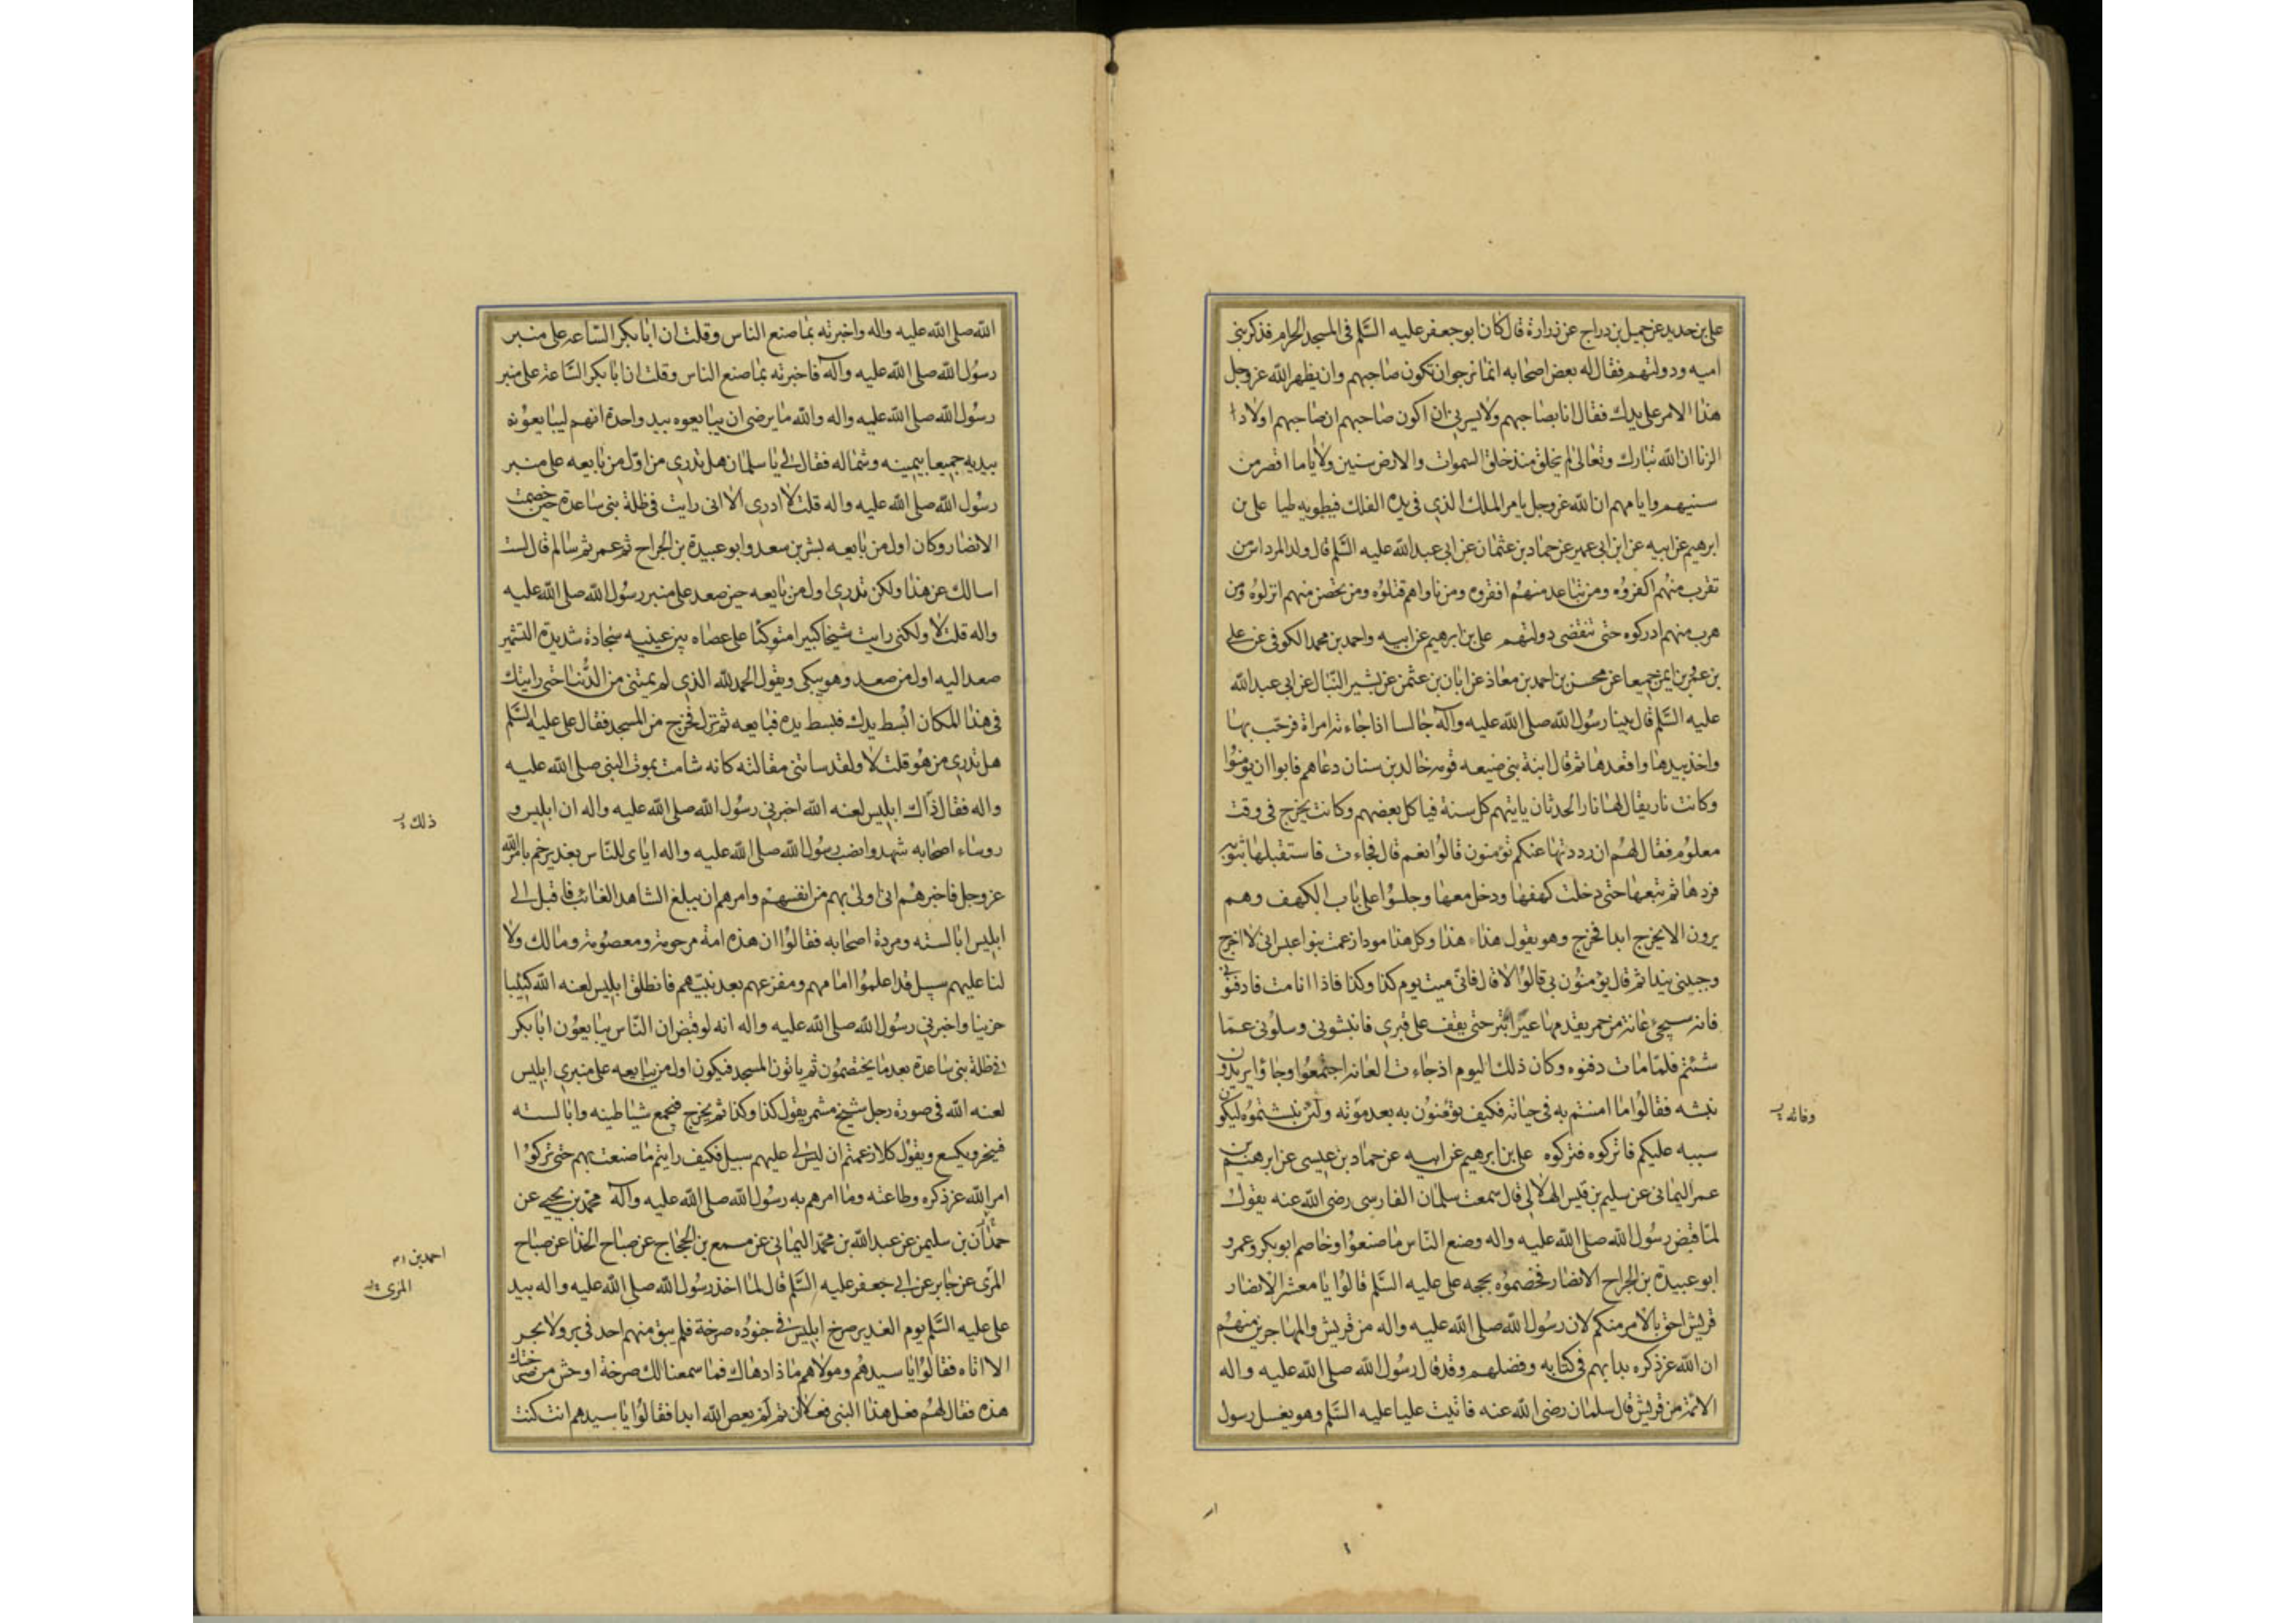 علي بن حديد عن جميل بن دراج عن زرارة قال كان ابو جعفر عليه السلم في المسجد الحرام فذكر بني
اميه ودولتهم فقال له بعض اصحابه انما نرجوا ان تكون صاحبهم وان يظهر الله عز وجل
هذا الامر على يدك فقال انا بصاحبهم ولا يسرني ان اكون صاحبهم ان صاحبهم اولادا
الزنا ان الله تبارك وتعالى لم يخلق منذ خلق السموات والارض سنين ولا اياما اقصر من
سنيهم وايامهم ان الله عز وجل يامر الملك الذي في يده الفلك فيطويه طيا علي بن
ابرهيم عن ابيه عن ابن ابي عمير عن حماد بن عثمان عن ابي عبد الله عليه السلم قال ولد المرداس من
تقرب منهم اكفروه ومن تباعد منهم افقروه ومن ناواهم قتلوه ومن تحصن منهم انزلوه ومن
هرب منهم ادركوه حتى تنقضي دولتهم علي بن ابرهيم عن ابيه واحمد بن محمد الكوفي عن علي
بن عمرو بن ايمن جميعا عن محسن بن احمد بن معاذ عن ابان بن عثمن عن بشير النبال عن ابي عبد الله
عليه السلم قال بينا رسول الله صلى الله عليه وآله جالسا اذا جاءته امراة فرحب بها
واخذ بيدها واقعدها ثم قال ابنة نبي ضيعه قومه خالد بن سنان دعاهم فابوا ان يؤمنوا
وكانت نار يقال لها نار الحدثان ياتيهم كل سنة فياكل بعضهم وكانت يخرج في وقت
معلوم فقال لهم ان رددتها عنكم تؤمنون قالوا نعم قال فجاءت فاستقبلها بثوبه
فردها ثم تبعها حتى دخلت كهفها ودخل معها وجلسوا على باب الكهف وهم
يرون الا يخرج ابدا فخرج وهو يقول هذا هذا وكل هذا مودا زعمت بنو اعبس اني لا اخرج
وجبيني يندا ثم قال يؤمنون بي قالوا لا قال فاني ميت يوم كذا وكذا فاذا انا مت فادفنوني
فانه سيجيء عانة من حمر يقدمها عير ابتر حتى يقف على قبري فانبشوني وسلوني عما
شئتم فلما مات دفنوه وكان ذلك اليوم اذ جاءت العانه اجتمعوا وجاؤا يريدون
نبشه فقالوا ما امنتم به في حياته فكيف يؤمنون به بعد موته ولئن نبشتموه ليكونن
سببه عليكم فاتركوه فتركوه علي بن ابرهيم عن ابيه عن حماد بن عيسى عن ابرهيم بن
عمر اليماني عن سليم بن قيس الهلالي قال سمعت سلمان الفارسي رضي الله عنه يقول
لما قبض رسول الله صلى الله عليه واله وصنع الناس ما صنعوا وخاصم ابو بكر وعمر و
ابو عبيدة بن الجراح الانصار فخصموه بحجه على عليه السلم قالوا يا معشر الانصار
قريش احق بالامر منكم لان رسول الله صلى الله عليه واله من قريش والمهاجرين منهم
ان الله عز ذكره بدا بهم في كتابه وفضلهم وقد قال رسول الله صلى الله عليه واله
الائمة من قريش قال سلمان رضي الله عنه فاتيت عليا عليه السلم وهو يغسل رسول
وفاته
الله صلى الله عليه واله واخبرته بما صنع الناس وقلت ان ابا بكر الساعه على منبر
رسول الله صلى الله عليه وآله فاخبرته بما صنع الناس وقلت ان ابا بكر الساعة على منبر
رسول الله صلى الله عليه واله والله ما يرضى ان يبايعوه بيد واحدة انهم ليبايعونه
بيديه جميعا بيمينه وشماله فقال لي يا سلمان هل تدري من اول من بايعه على منبر
رسول الله صلى الله عليه واله قلت لا ادري الا اني رايت في ظلة بني ساعدة حين خصمت
الانصار وكان اول من بايعه بشر بن سعد وابو عبيدة بن الجراح ثم عمر ثم سالم قال لست
اسالك عن هذا ولكن تدري اول من بايعه حين صعد على منبر رسول الله صلى الله عليه
واله قلت لا ولكني رايت شيخا كبيرا متوكئا على عصاه بين عينيه سجادة شديدة التشمير
صعد اليه اول من صعد وهو يبكي ويقول الحمد لله الذي لم يمتني من الدنيا حتى رايتك
في هذا المكان ابسط يدك فبسط يده فبايعه ثم نزل فخرج من المسجد فقال علي عليه السلم
هل تدري من هو قلت لا ولقد ساتني مقالته كانه شامت بموت النبي صلى الله عليه
واله فقال ذاك ابليس لعنه الله اخبرني رسول الله صلى الله عليه واله ان ابليس و
روساء اصحابه شهدوا نصب رسول الله صلى الله عليه واله اياي للناس بغدير خم بامر الله
عز وجل فاخبرهم اني اولى بهم من انفسهم وامرهم ان يبلغ الشاهد الغائب فاقبل الى
ابليس ابالسته ومردة اصحابه فقالوا ان هذه امة مرحومة ومعصومة ومالك ولا
لنا عليهم سبيل قد اعلموا امامهم ومفزعهم بعد نبيهم فانطلق ابليس لعنه الله كئيبا
حزينا واخبرني رسول الله صلى الله عليه واله انه لو قبض ان الناس يبايعون ابا بكر
في ظلة بني ساعدة بعد ما يختصمون ثم ياتون المسجد فيكون اول من يبايعه على منبري ابليس
لعنه الله في صورة رجل شيخ مشمر يقول كذا وكذا ثم يخرج فيجمع شياطينه وابالسته
فينخر ويكسع ويقول كلا زعمتم ان ليس لي عليهم سبيل فكيف رايتم ما صنعت بهم حتى تركوا
امر الله عز ذكره وطاعته وما امرهم به رسول الله صلى الله عليه وآله محمد بن يحيى عن
حمدان بن سليمن عن عبد الله بن محمد اليماني عن مسمع بن الحجاج عن صباح الحذا عن صباح
المزى عن جابر عن ابي جعفر عليه السلم قال لما اخذ رسول الله صلى الله عليه واله بيد
علي عليه السلم يوم الغدير صرخ ابليس في جنوده صرخة فلم يبق منهم احد في بر ولا بحر
الا اتاه فقالوا يا سيدهم ومولاهم ماذا دهاك فما سمعنا لك صرخة اوحش من صرختك
هذه فقال لهم فعل هذا النبي فعلا ان تم لم يعص الله ابدا فقالوا يا سيدهم انت كنت
ذلك
احمد بن
المزى